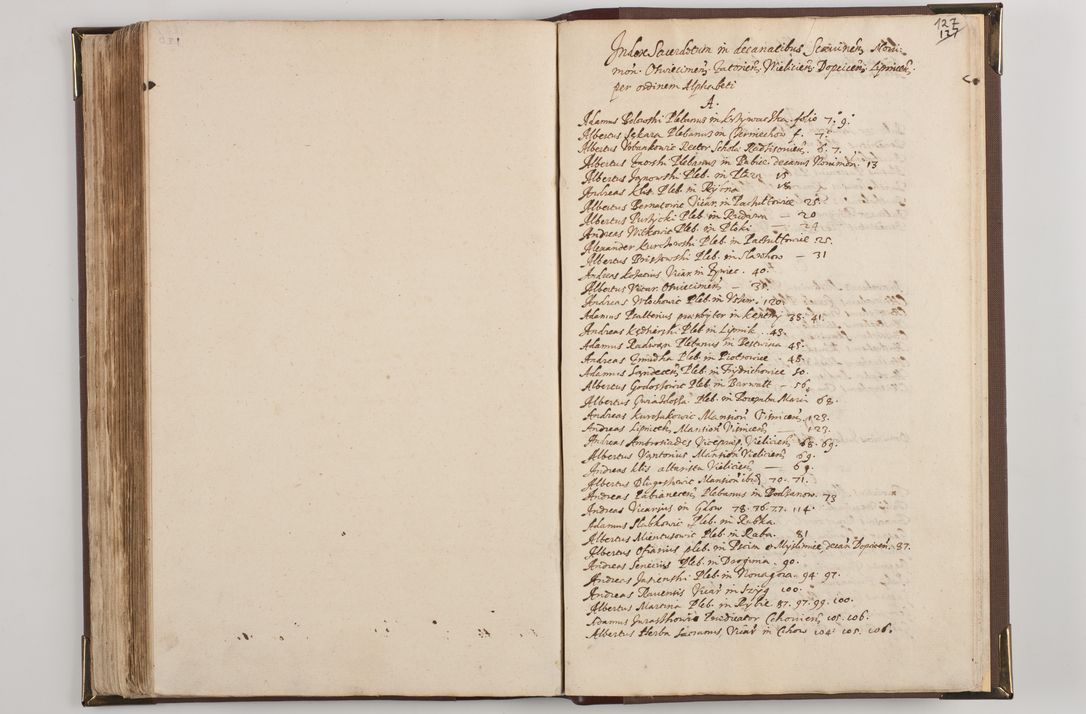 127
127
Index Sacerdotum in decanatibus Scavinen, Novi-
mon. Oswiecimen, Zatorien, Wielicien, Dopcicen, Lipnicen,
per ordinem Alphabeti
A.
Adamus Plebanus in folio 7. 9.
Albertus Plebanus in Czerniechow f. 7.
Albertus Rector Scholæ 6. 7.
Albertus Plebanus in Babice decanus Novimon. 13
Albertus Pleb. in Plaza 15
Andreas Klis Pleb. in Rybna 18
Albertus Bernatowic Vicar. in Pachultowice 25.
Albertus Purzycki Pleb. in Rudawa — 20
Andreas Witkowic Pleb. in Ploki — 24
Alexander Kurchowski Pleb. in Pachultowice 25.
Albertus Pleb. in Slawkow — 31
Andreas Vicar. in Zywiec. 40.
Albertus Vicar. Oswiecimen — 35.
Andreas Wlochowic Pleb. in 120.
Adamus Psalterius præsbyter in Kenty 38. 41.
Andreas Pleb. in Lipnik. 43.
Adamus Radwan Plebanus in Bestwina 45.
Andreas Gmudka Pleb. in Piotrowice. 48.
Adamus Sandecen, Pleb. in Frydrichowice 50.
Albertus Pleb. in Barwalt — 56.
Albertus Gwiazdoska Pleb. in Mariæ 62.
Andreas Mansion Visnicen, 123.
Andreas Lipnicen, Mansion Visnicen, — 123.
Andreas Ambrosiades Vicepræp. Vielicien, 68. 69.
Albertus Vantonius Mansion Vielicien, 69.
Andreas Klis altarista Vielicien, — 69.
Albertus Dlugoschowic Mansion ibid 70. 71.
Andreas Pabianecen, Plebanus in 73
Andreas Vicarius in Gdow 78. 76. 77. 114.
Adamus Slabkowic Pleb. in Rabka.
Albertus Mientusowic Pleb. in Raba. 81
Albertus Ofiarius pleb. in Pcim e Myslimice, decan Dopcicen. 87.
Andreas Senecius Pleb. in Drogina. 90.
Andreas Jasienski Pleb. in Nonagora. 94. 97.
Andreas Ravensis Vicar in 100.
Albertus Martena Pleb. in Rybie. 87. 97. 99. 100.
Adamus Prædicator Cchovien, 105. 106.
Albertus Herba Sacranus, Vicar in Cchow 104. 105. 106.